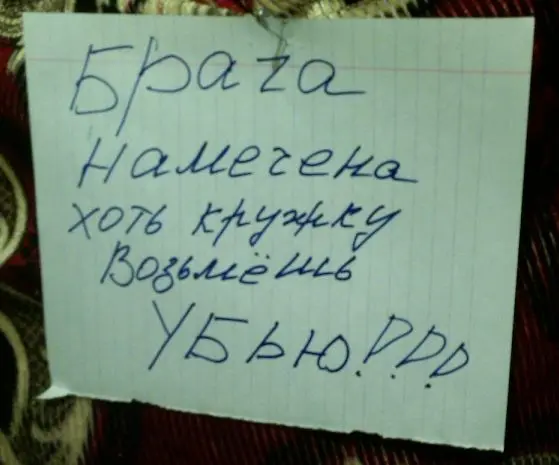 Брага
намечена
хоть кружку
возьмёшь
УБЬЮ!!!